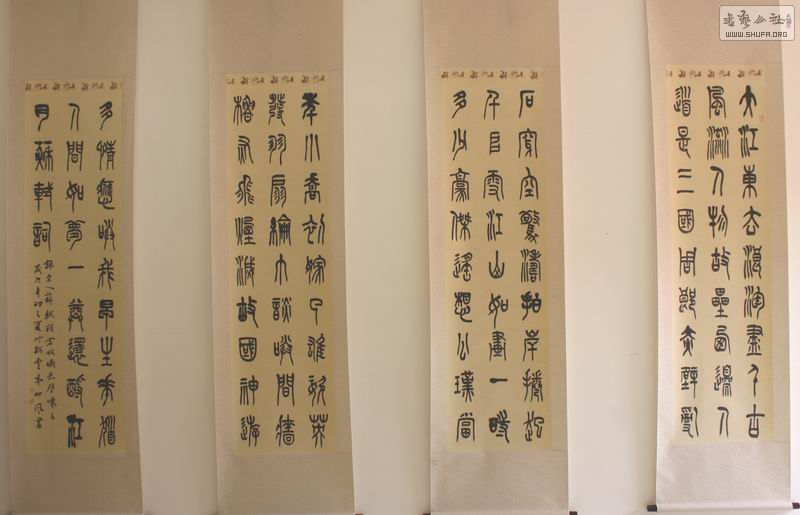 大江東去浪淘盡千古
風流人物故壘西邊人
道是三國周郎赤壁亂
石穿空驚濤拍岸捲起
千堆雪江山如畫一時
多少豪傑遙想公瑾當
年小喬初嫁了雄姿英
發羽扇綸巾談笑間檣
櫓灰飛煙滅故國神游
多情應笑我早生華髮
人間如夢一尊還酹江
月蘇軾詞
錄宋人蘇軾詞念奴嬌赤壁懷古
歲次辛卯之夏
書藝公社
WWW.SHUFA.ORG